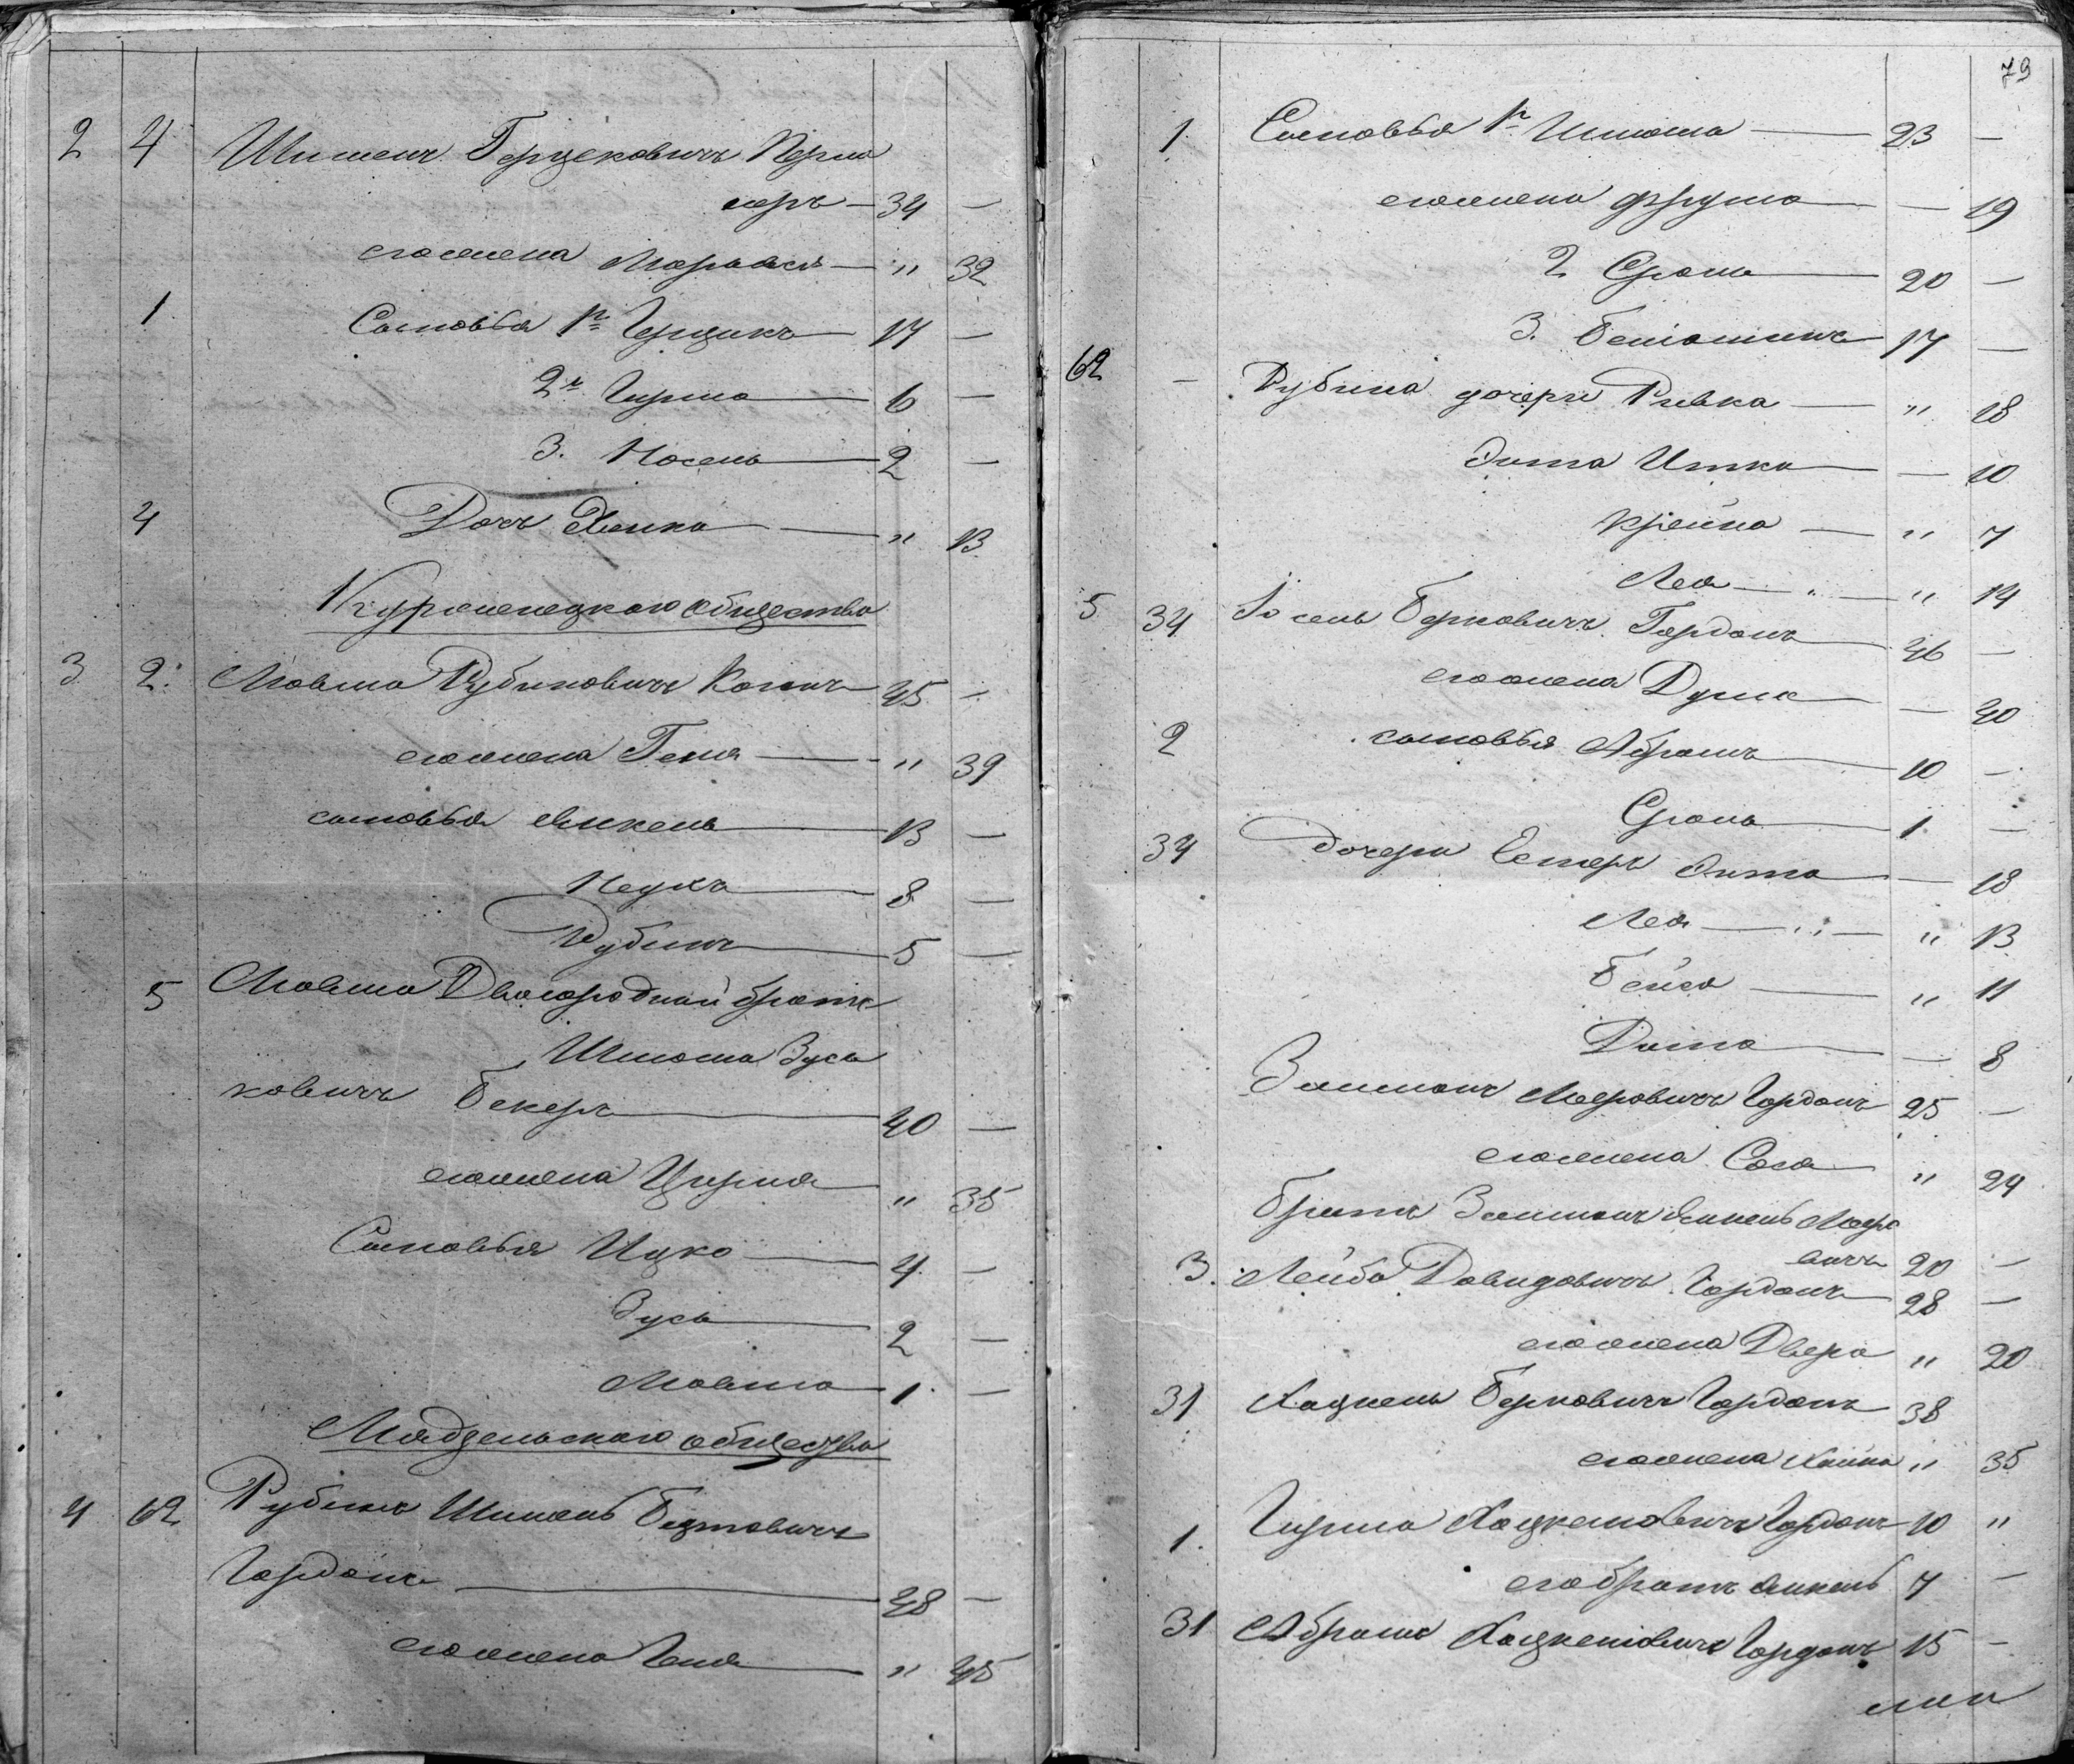 2 4 Шименъ Герцековичъ Перло
серъ — 34 —
его жена Марьася — " 32
1 Сыновья 1й Герцикъ — 17 —
2й Гирша — 6 —
3. Носель — 2 —
4 Дочь Хенка — " 13
Куренецкаго общества
3 2. Мовша Рубиновичъ Коганъ 45 —
его жена Геня — " 39
сыновья Янкель — 13 —
Неухъ — 8 —
Рубинъ — 5 —
5 Мовша Двоюродный братъ
Шлёма Зусь
ковичъ Бекеръ — 40 —
его жена Цирля — " 35
Сыновья Ицко — 4 —
Зусь — 2 —
Мовша — 1 —
Мядзельскаго общества
4 62 Рубинъ Шимель
Гордонъ — 48 —
его жена Геня — " 45
79
1. Сыновья 1й Шлёма — 23 —
его жена Фрума — — 19
2 Срель — 20 —
3. Беніоминъ 17 —
62 — Рубина дочери Ривка — " 18
Элта Итка — — 10
Крейна — " 7
Лея — " — " 14
5 34 Іосель Берковичъ Гордонъ 46 —
его жена Душе — — 40
2 сыновья Абрамъ — 10 —
Сроль — 1 —
34 дочери Естеръ Элта — — 18
Лея — " — " 13
Бейла — " 11
— — 8
Залманъ Мееровичъ Гордонъ 25 —
его жена Сося — " 24
братъ Залмана Янкель Мееро
вичъ 20 —
3. Лейба Давидовичъ Гордонъ 28 —
его жена Двера " 20
31 Хацкель Берковичъ Гордонъ 38
его жена Хайна " 35
1. Гирша Хацкелевичъ Гордонъ 10 "
его братъ Янкель 7 —
31 Абрамъ Хацкелевичъ Гордонъ 15 —